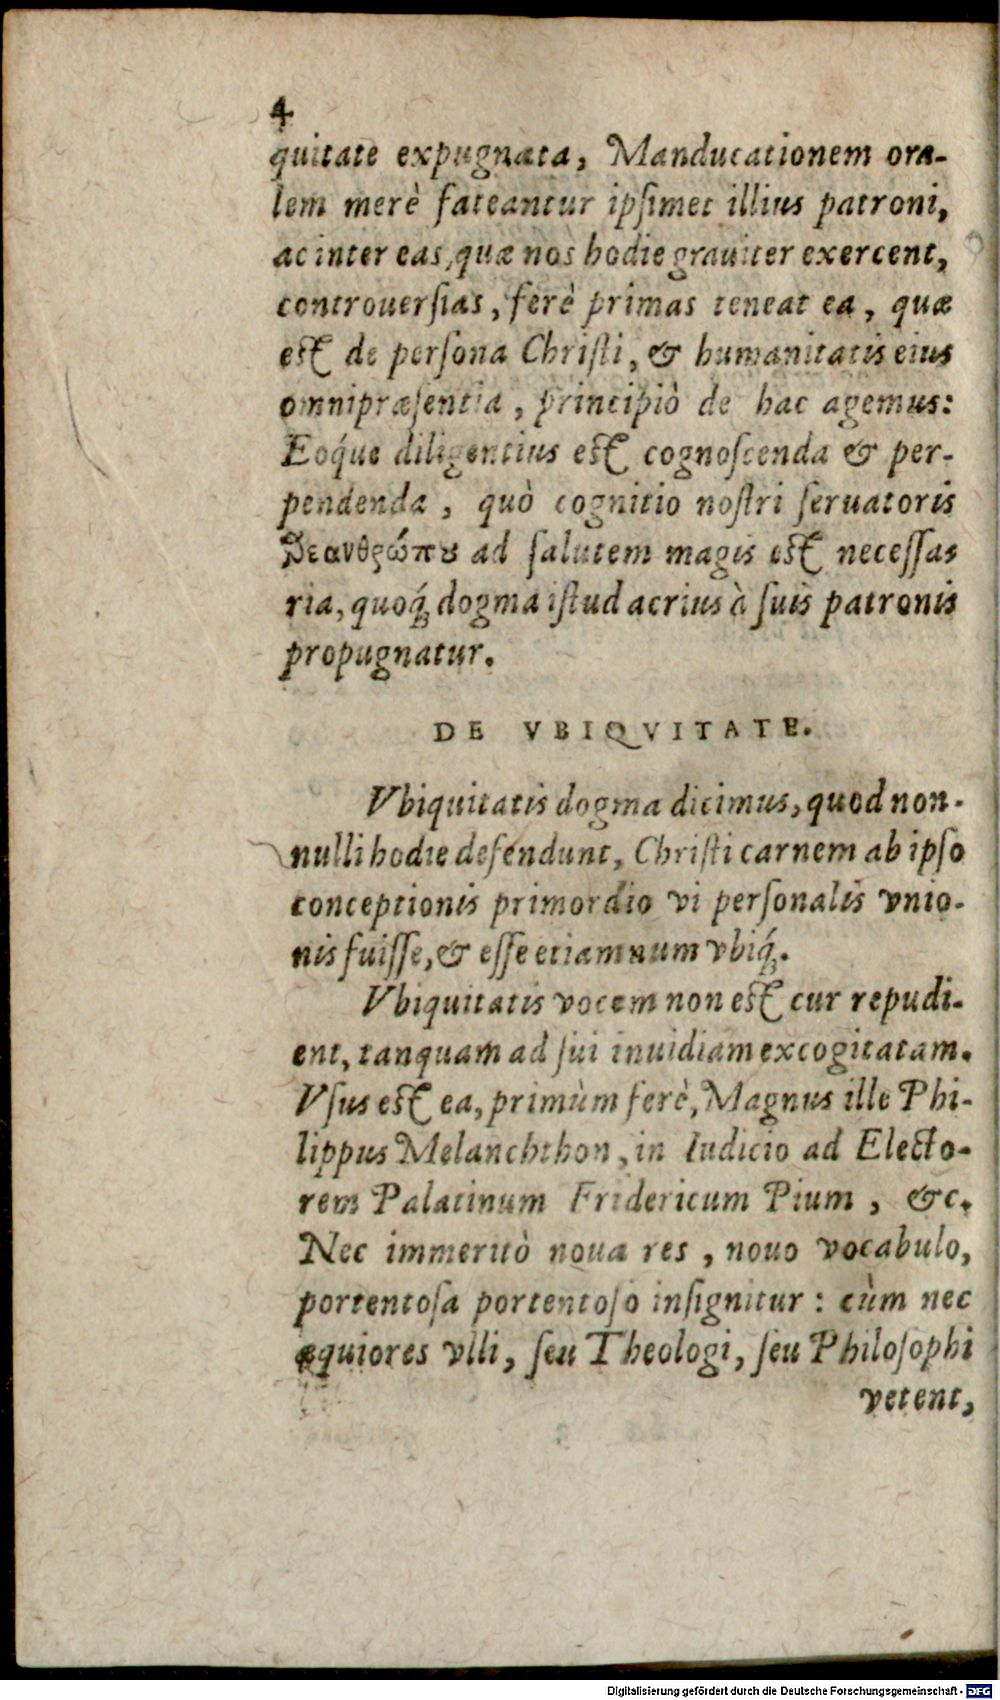 4
quitate expugnata, Manducationem ora-
lem merè fateantur ipſimet illius patroni,
ac inter eas, quæ nos hodie grauiter exercent,
controuerſias, ferè primas teneat ea, quæ
eſt de perſona Chriſti, & humanitatis eius
omnipræſentia, principiò de hac agemus:
Eoq́ue diligentius eſt cognoſcenda & per-
pendenda, quò cognitio noſtri ſeruatoris
ϑεανθρώπȣ ad ſalutem magis eſt neceſſas
ria, quoq́; dogma iſtud acrius à ſuis patronis
propugnatur.
DE VBIQVITATE.
Vbiquitatis dogma dicimus, quod non-
nulli hodie defendunt, Chriſti carnem ab ipſo
conceptionis primordio vi perſonalis vnio-
nis fuiſſe, & eſſe etiamnum vbiq́;.
Vbiquitatis vocem non eſt cur repudi-
ent, tanquam ad ſui inuidiam excogitatam.
Vſus eſt ea, primùm ferè, Magnus ille Phi-
lippus Melanchthon, in Iudicio ad Electo-
rem Palatinum Fridericum Pium, &c.
Nec immeritò noua res, nouo vocabulo,
portentoſa portentoſo inſignitur: cùm nec
æquiores vlli, ſeu Theologi, ſeu Philoſophi
vetent,
Digitalisierung gefördert durch die Deutsche Forschungsgemeinschaft - DFG